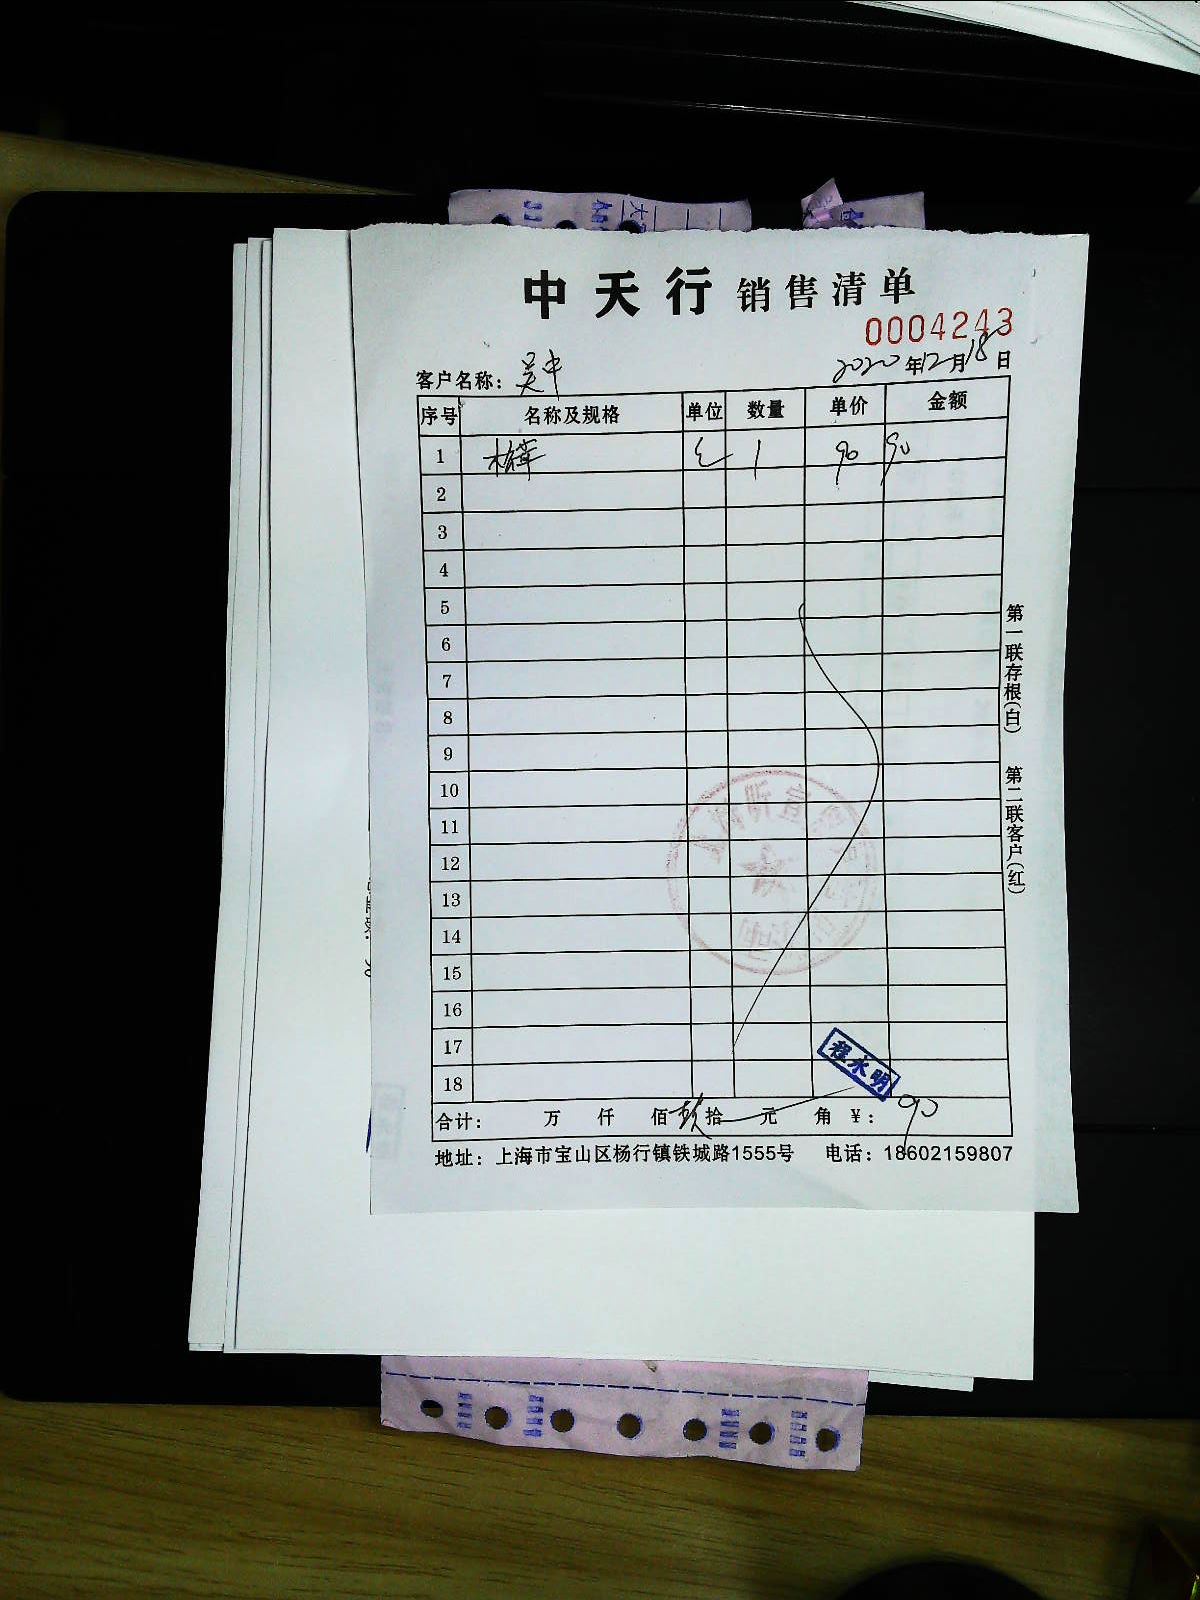 中天行 销售清单
0004243
客户名称：吴中 2020年12月18日
序号 名称及规格 单位 数量 单价 金额
1 1 90 90
2
3
4
5
6
7
8
9
10
11
12
13
14
15
16
17
18
程永明
合计： 万 仟 佰 玖拾 元 角 ¥：90
地址：上海市宝山区杨行镇铁城路1555号 电话：18602159807
第一联存根(白) 第二联客户(红)